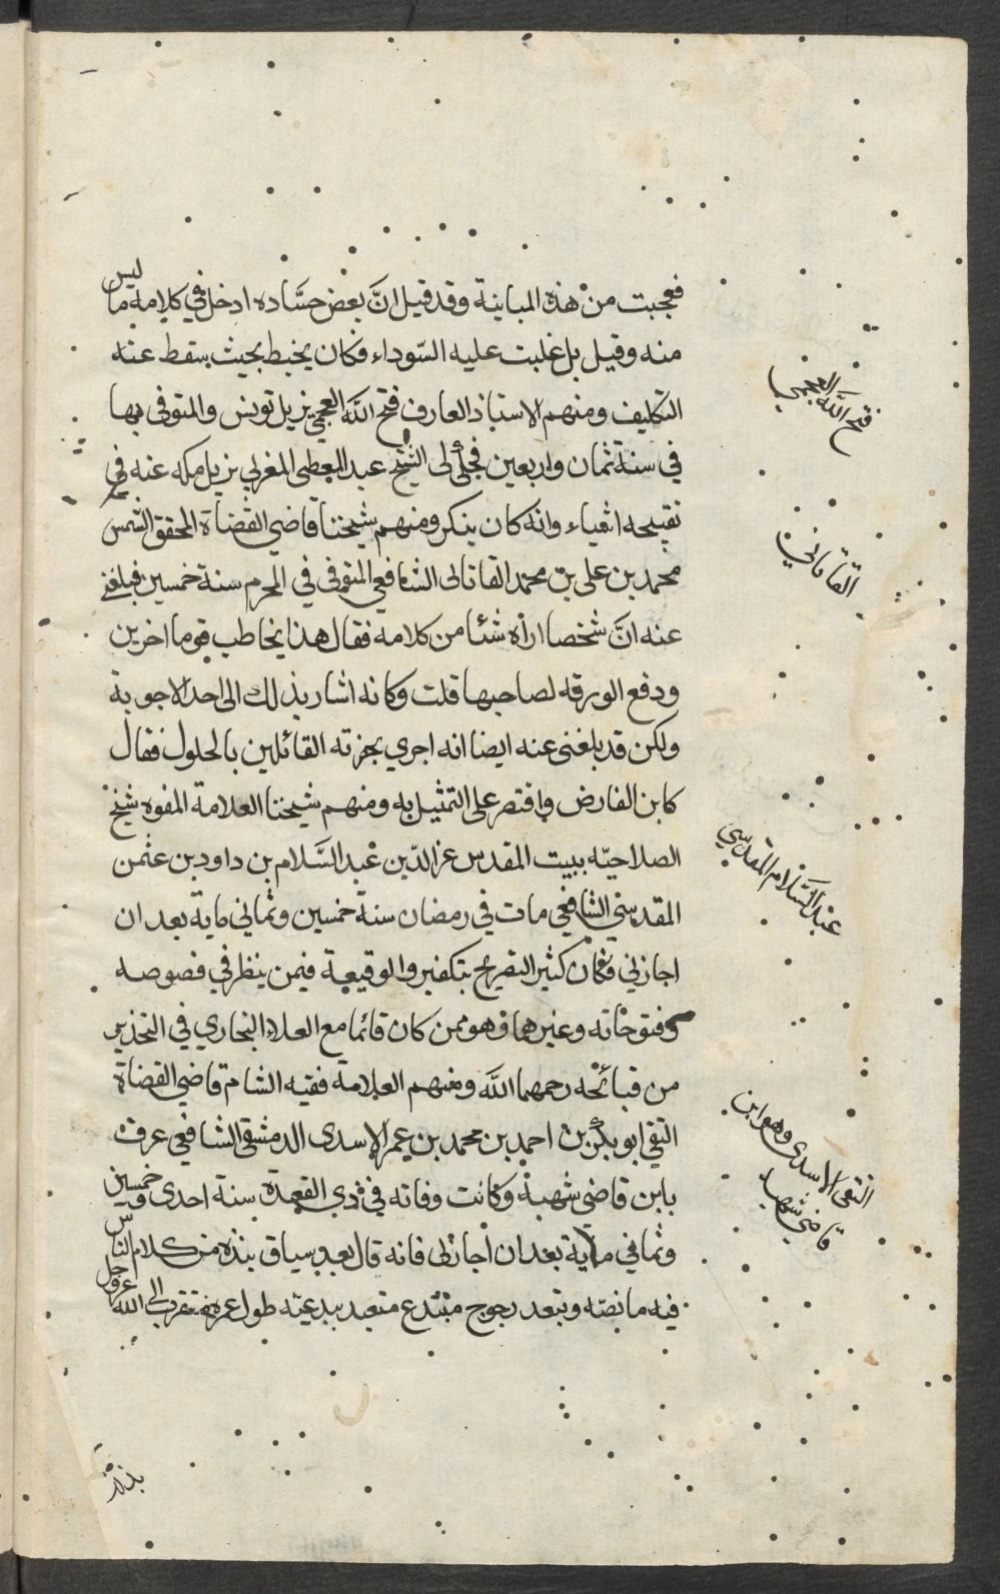 فعجبت من هذه المباينة وقد قيل ان بعض حسّاده ادخل في كلامه ما ليس
منه وقيل بل غلبت عليه السّوداء فكان يخبط بحيث يسقط عنه
التكليف ومنهم الاستاد العارف فتح الله العجمي نزيل تونس والمتوفى بها
في سنة ثمان واربعين فحكى لى الشيخ عبد المعطى المغربي نزيل مكه عنه في
تقبيحه اشياء وانه كان ينكر ومنهم شيخنا قاضي القضاة المحقق الشمس
محمد بن على بن محمد القاياتى الشافعي المتوفى في المحرم سنة خمسين فبلغنى
عنه انّ شخصا اراه شئا من كلامه فقال هذا يخاطب قوما اخرين
ودفع الورقه لصاحبها قلت وكانه اشار بذلك الى احد الاجوبة
ولكن قد بلغنى عنه ايضا انه اجري بحضرته القائلين بالحلول فقال
كابن الفارض واقتصر على التمثيل به ومنهم شيخنا العلامة المفوه شيخ
الصلاحيّه ببيت المقدس عز الدّين عبد السَّلام بن داود بن عثمن
المقدسي الشافعي مات في رمضان سنة خمسين وثماني ماية بعد ان
اجازني فكان كثير التصريح بتكفير والوقيعة فيمن ينظر في فصوصه
وفتوحاته وغيرهما وهو ممن كان قائما مع العلاء البخاري في التحذير
من قبائحه رحمهما الله ومنهم العلامة فقيه الشام قاضي القضاة
التقي ابو بكر بن احمد بن محمد بن عمر الاسدى الدمشقي الشافعي عرف
بابن قاضي شهبة وكانت وفاته في ذي القعدة سنة احدى وخمسين
وثماني ماية بعد ان اجاز لى فانه قال بعد سياق نبذه من كلام الناس
فيه ما نصّه ويبعد رجوع مبتدع متعبد ببدعته طول عمره متقرب الى الله عز وجل
فتح الله العجمي
القاياتي
عبد السَّلام المقدسي
التقى الاسدى وهو ابن
قاضي شهبه